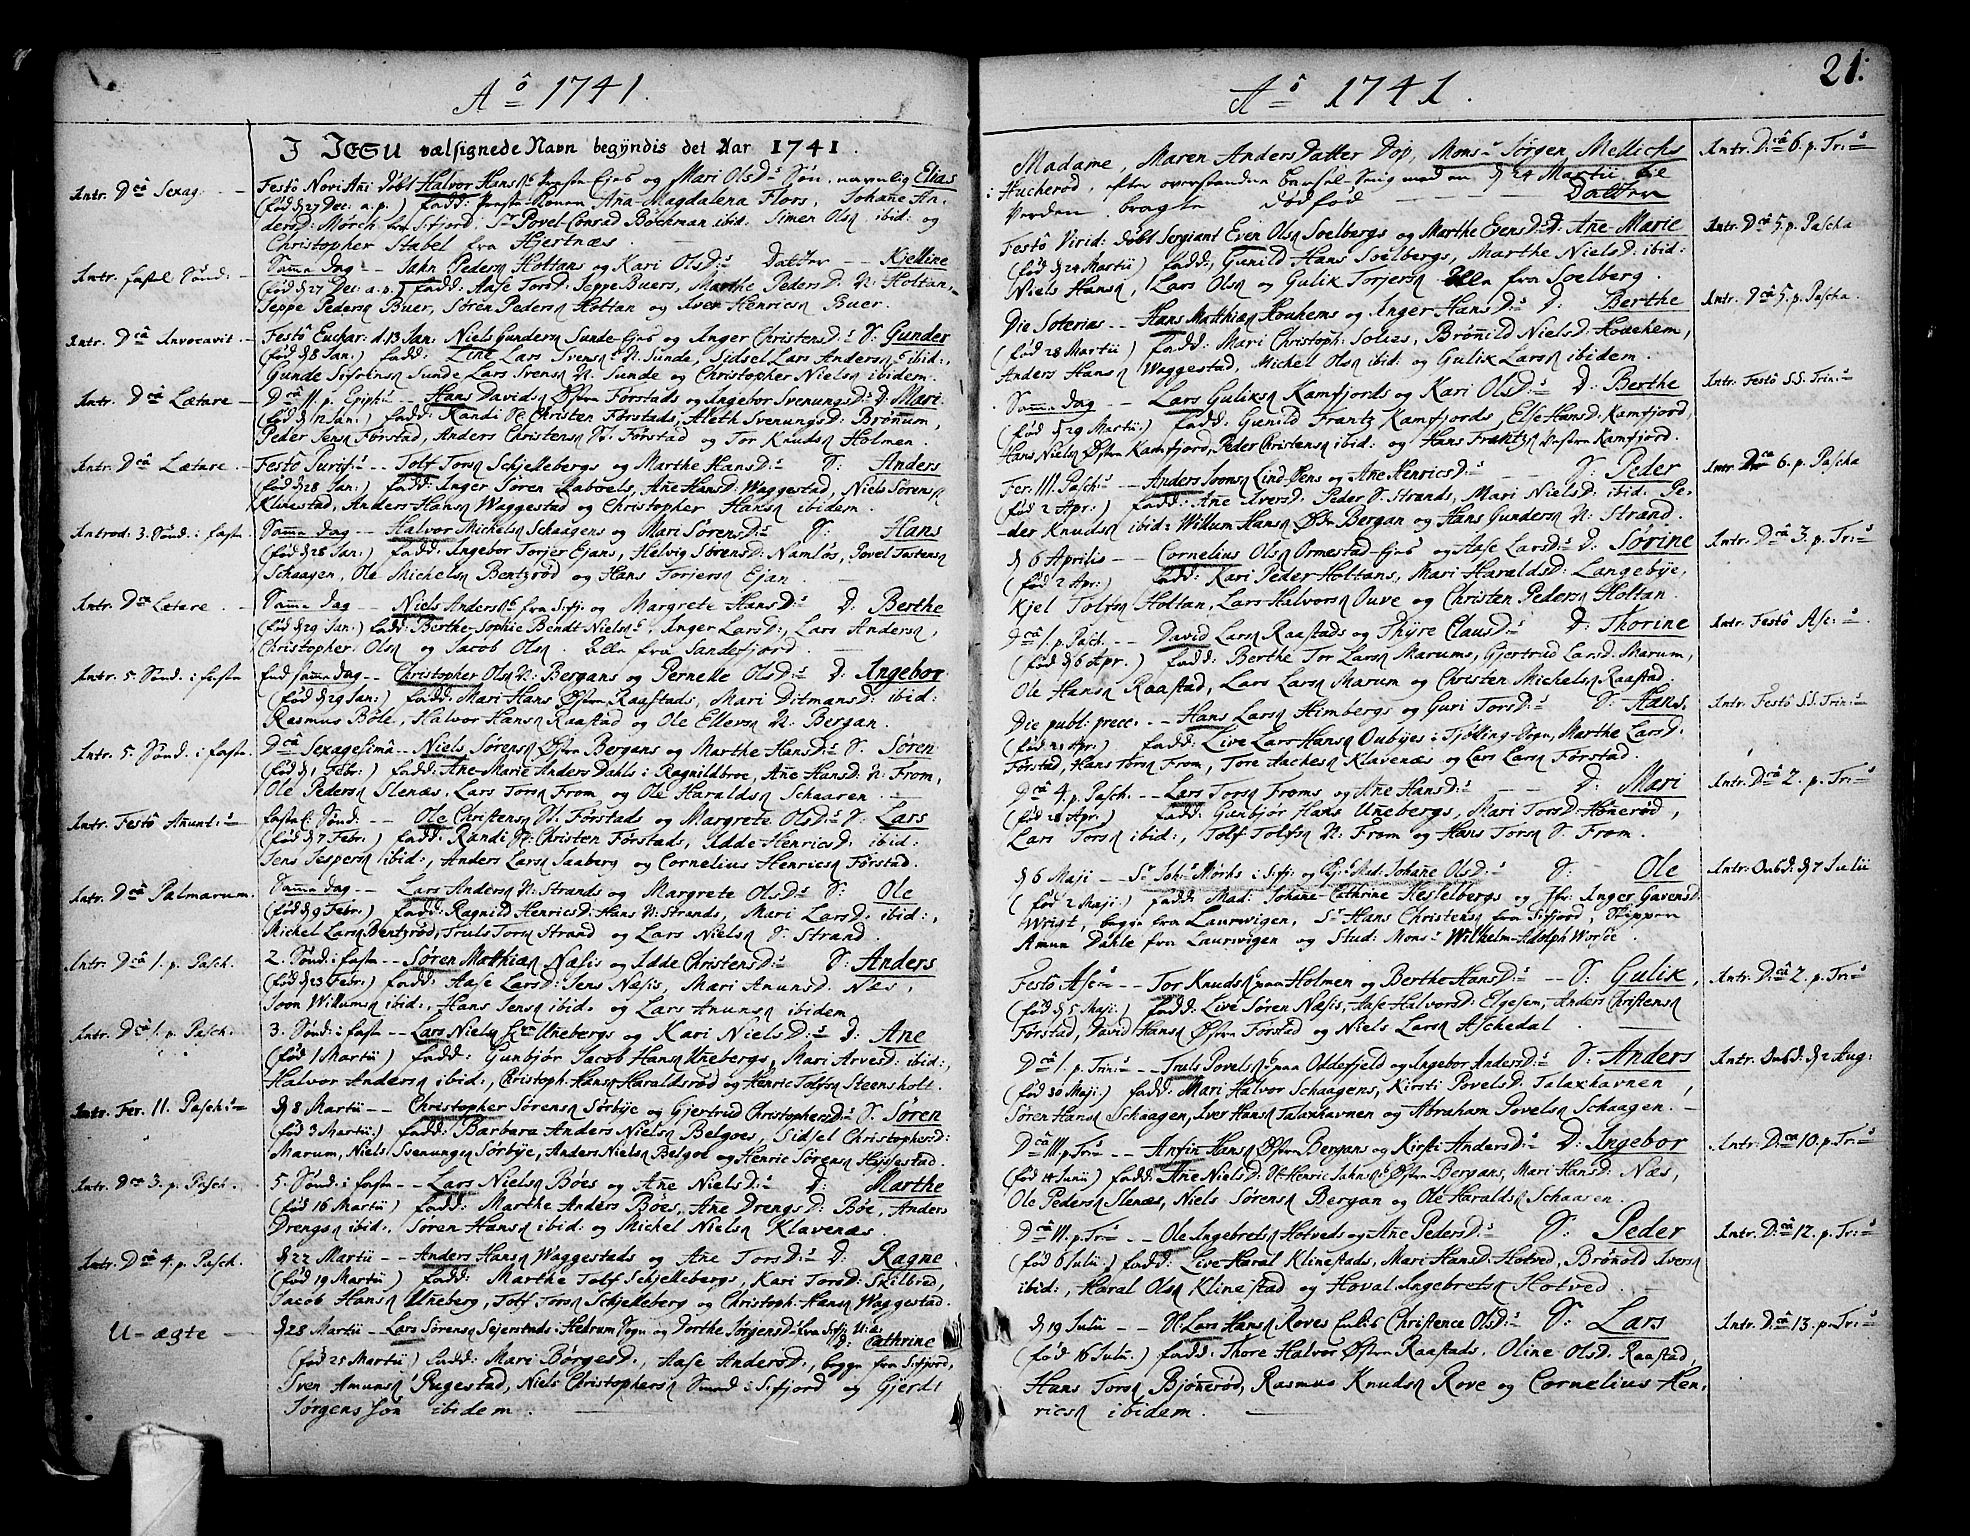 Aº 1741.
I JESU velsignede Navn begÿndis det Aar 1741.
Intr. Dca Sexag:
Festô Novi Añi döbt Halvor Hans Søn, navnlig Elias
(fød d 27 Dec: a. p.) fadd: Ana-Magdalena Flors, Johañe An-
ders D: Mörch fra Sifjord, Sr Povel-Conrad Böchman ibid. Simen Ols ibid: og
Christopher Stabel fra Hjertnæs.
Intr. fastel. Sönd:
Samã dag -- Jahn Peders Holtans og Kari Ols D:r Datter -- Kjelline
(fød d 27 Dec: a. p.) fadd: Aase Tors D: Jeppe Buers, Marthe Peders D: N: Holtan,
Jeppe Peders Buer, Sören Peders Holtan og Iver Henrics Buer.
Intr. Dca Invocavit.
Festô Euchar: d. 13 Jan: Niels Gunders Sunde og Anger Christens D:r S: Gunder
(fød d 8 Jan:) fadd: Line Lars Svens N: Sunde, Sidsel Lars Anders ibid:,
Gunde Sunde Lars Svens N: Sunde og Christopher Niels ibidem.
Intr. Dca Lætare --
Dca II. p. Epiph: -- Hans Davids Östre Förstads og Ingebor Svenungs D: D: Mari
(fød d 12 Jan:) fadd: Randi Christen Förstads, Aleth Svenungs D: Brönum,
Peder Jens Förstad, Anders Christens N: Förstad og Tor Knuds Holmen.
Intr. Dca Lætare --
Festô Purif: -- Tolf Tors Schjellebergs og Marthe Hans D:r S: Anders
(fød d 28 Jan:) fadd: Inger Sören Laboels, Añe Hans D: Waggestad, Niels Sörens
Klinestad, Anders Hans Waggestad og Christopher Hans ibidem.
Introd. 3. Sönd: i faste
Samã dag -- Halvor Michels Schaagens og Mari Sörens D:r S: Hans
(fød d 28 Jan:) fadd: Ingebor Torjer Ejans, Helvig Sörens D: Namløs, Povel Tostens
Schaagen, Ole Michels Bentzröd og Hans Torjers Ejan.
Intr. Dca Lætare
Samã dag -- Niels Anders fra Sifj: og Margrete Hans D:r D: Berthe
(fød d 29 Jan:) fadd: Berthe-Sophie Bendt Niels, Inger Lars D:, Lars Anders,
Christopher Ols og Jacob Ols. Alle fra Sandefjord.
Intr. 5. Sönd: i faste
End samã dag -- Christopher Ols N: Bergans og Pernelle Ols D:r D: Ingebor
(fød d 29 Jan:) fadd: Mari Hans Östre Raastads, Mari Ditmans D: ibid:
Rasmus Böle, Halvor Hans Raastad og Ole Ellers N: Bergan.
Intr. 5. Sönd: i faste.
Dca Sexagesima -- Niels Sörens Östre Bergans og Marthe Hans D:r S: Sören
(fød d 1 Febr:) fadd: Ane-Marie Anders Dahls i Ragnildroe, Añe Hans D: N: From,
Ole Peders Slenæs, Lars Tors From og Ole Haralds Schaaren.
Intr. Festô Añunt:
fastel: Sönd: -- Ole Christens N: Förstads og Margrete Ols D:r S: Lars
(fød d 7 Febr:) fadd: Randi Christen Förstads, Idde Henrics D: ibid:
Jens Jespers ibid:, Anders Lars Saaberg og Cornelius Henrics Förstad.
Intr. Dca Palmarum.
Samã dag -- Lars Anders N: Strands og Margrete Ols D:r S: Ole
(fød d 9 Febr:) fadd: Ragnild Henrics D: Hans N: Strands, Mari Lars D: ibid:,
Michel Lars Bentzröd, Truls Tors Strand og Lars Niels S: Strand.
Intr. Dca 1. p. Pasch.
2. Sönd: i faste -- Sören Mathias Næsis og Idde Christens D:r S: Anders
(fød d 23 Febr:) fadd: Aase Lars D: Jens Næsis, Mari Amuns D: Næs,
Soon Willums ibid:, Hans Jens ibid: og Lars Amuns ibidem.
Intr. Dca 1. p. Pasch.
3. Sönd: i faste -- Lars Niels Unebergs og Kari Niels D:r D: Ane
(fød 1 Martii) fadd: Gunbjör Jacob Hans Unebergs, Mari Arves D: ibid:,
Halvor Anders ibid:, Christoph: Hans Haraldsröd og Henric Tolfs Steensholt.
Intr. Fer. II. Pasch:
d 8 Martii -- Christopher Sörens Sörbÿe og Gjertrud Christophers D:r S: Sören
(fød 3 Martii) fadd: Barbara Anders Niels Belgoes, Sidsel Christophers D:
Marum, Niels Svenungs Sörbÿe, Anders Niels Belgoe og Henric Sörens Hÿssestad.
Intr. Dca 3. p. Pasch.
5. Sönd: i faste -- Lars Niels Böes og Ane Niels D:r D: Marthe
(fød 16 Martii) fadd: Marthe Anders Böes, Ane Drengs D: Böe, Anders
Drengs ibid:, Sören Hans ibid: og Michel Niels Klavenæs
Intr. Dca 4. p. Pasch.
d 22 Martii -- Anders Hans Waggestads og Añe Tors D:r D: Ragne
(fød 19 Martii) fadd: Marthe Tolf Schjellebergs, Kari Tors D: Skilbred,
Jacob Hans Uneberg, Tolf Tors Schjelleberg og Christoph: Hans Waggestad.
U-ægte --
d 28 Martii -- Lars Sörens Sejerstads i Hedrum Sogn og Dorthe Jörgens D: fra Sifj: U:æ:
D: Cathrine
(fød 25 Martii) fadd: Mari Börges D:, Aase Anders D:, begge fra Sifjord,
Sven Amuns Pugestad, Niels Christophers Smed i Sifjord og Gjerdt
Jörgens Son ibidem.
Aº 1741.
21.
Madame, Maren Anders Datter Dop, Monsr Jörgen Mellichs
i Hucheröd, efter overstanden Barsel-Seng med en d 24 Martii til
Verden bragte dödföd -- Datter
Intr. D:ca 6. p. Tr:
Festô Virid: döbt Sergiant Even Ols Soelbergs og Marthe Evens D: D: Ane Marie
(fød d 24 Martii) fadd:, Gunild Hans Soelbergs, Marthe Niels D: ibid:
Niels Hans, Lars Ols og Gulik Torjers Alle fra Soelberg.
Intr. Dca 5. p. Pascha
Die Soterias -- Hans Matthias Houhems og Inger Hans D:r D: Berthe
(fød 28 Martii) fadd: Mari Christoph: Solies, Brönnild Niels D: Houchem,
Anders Hans Waggestad, Michel Ols ibid: og Gulik Lars ibidem.
Intr. Dca 5. p. Pascha.
Samã dag -- Lars Guliks Kamfjords og Kari Ols D:r D: Berthe
(fød d 29 Martii) fadd: Gunild Frantz Kamfjords, Else Hans D: Kamfjord,
Hans Niels Östre Kamfjord, Peder Christens ibid: og Hans Frantz Vestre Kamfjord.
Intr. Festô SS. Trin:
Fer. III. Pasch: -- Anders Soons Lind-Øens og Ane Henrics D:r S: Peder
(fød 2 Apr:) fadd: Añe Ivers D: Peder S: Strands, Mari Niels D: ibid: Pe-
der Knuds ibid: Willum Hans Bergan og Hans Gunders N: Strand.
Intr. Dca 6. p. Pascha
d 6 Aprilis -- Cornelius Ols Ormestad og Aase Lars D:r D: Sörine
(fød 2 Apr:) fadd: Kari Peder Holtans, Mari Haralds D: Langebÿe,
Kjel Tolfs Holtan, Lars Halvors Ouve og Christen Peders Holtan.
Intr. D:ca 3. p. Tr:
Dca 1. p. Pasch. -- David Lars Raastads og Thÿre Claus D:r D: Thorine
(fød d 6 Apr:) fadd: Berthe Tor Lars Marums, Gjertrud Lars D: Marum,
Ole Hans Raastad, Lars Lars Marum og Christen Michels Raastad.
Intr. Festô Asc:
Die publ: prec: -- Hans Lars Himbergs og Guri Tors D:r S: Hans.
(fød 21 Apr:) fadd: Live Lars Hans Oubÿes i Tjölling-Sogn, Marthe Lars D:
Förstad, Hans Tors From, Tore Aaches Klavenæs og Lars Lars Förstad.
Intr. Festô SS. Trin:
Dca 4. p. Pasch. -- Lars Tors Froms og Ane Hans D:r D: Mari
(fød 28 Apr:) fadd: Gunbjør Hans Uñebergs, Mari Tors D: Hönerød,
Lars Tors ibid:, Tolf Tolfs N: From og Hans Tors S: From.
Intr. D:ca 2. p. Tr:
d 6 Maji -- Sr Joh: Mörks i Sifj: og Mad: Johañe Ols D:r S: Ole
(fød 2 Maji:) fadd: Mad: Johane-Cathrine Hesselbergs og Jfr: Anger Gavens D:
Wrist, begge fra Laurwigen, Sr Hans Christens fra Sifjord, Skipper
Amun Dahle fra Laurwigen og Stud: Monsr Wilhelm-Adolph Worse.
Intr. Onsd: d 7 Julii
Festo Asc: -- Tor Knuds paa Holmen og Berthe Hans D:r -- S: Gulik,
(fød d 5 Maji:) fadd: Live Sören Næsis, Aase Halvors D: Elgesem, Anders Christens
Förstad, David Hans Östre Förstad og Niels Lars Aschedal.
Intr. D:ca 2. p. Tr:
Dca 1. p. Trin: -- Truls Povels paa Oddefjeld og Ingebor Anders D:r S: Anders
(fød 30 Maji:) fadd: Mari Halvor Schaagens, Kirsti Povels D: Talaxhavnen,
Sören Hans Schaagen, Iver Hans Talaxhavnen og Abraham Povels Schaagen. --
Intr. Onsd: d 2 Aug:
Dca III. p. Tr: -- Anfin Hans Östre Bergans og Kirsti Anders D:r D: Ingebor
(fød 14 Junii) fadd: Añe Niels D: Henric Jahns Östre Bergans, Mari Hans D: Næs,
Ole Peders Slenæs, Niels Sörens Bergan og Ole Haralds Schaasen.
Intr: D:ca 10. p. Tr:
Dca VI. p. Tr: -- Ole Ingebrets Hotveds og Ane Peders D:r S: Peder
(fød 6 Julii) fadd: Live Haral Klinestads, Mari Hans D: Hotved, Brönold Ivers
ibid:, Haral Ols Klinestad og Hoval Ingebrets Hotved.
Intr. D:ca 12. p. Tr:
d 19 Julii -- Lars Hans Roves og Christence Ols D:r S: Lars
(fød 16 Julii:) fadd: Thore Halvor Östre Raastads, Oline Ols D: Raastad,
Hans Tors Bjöneröd, Rasmus Knuds Rove og Cornelius Hen-
rics ibidem.
Intr. D:ca 13. p. Tr: